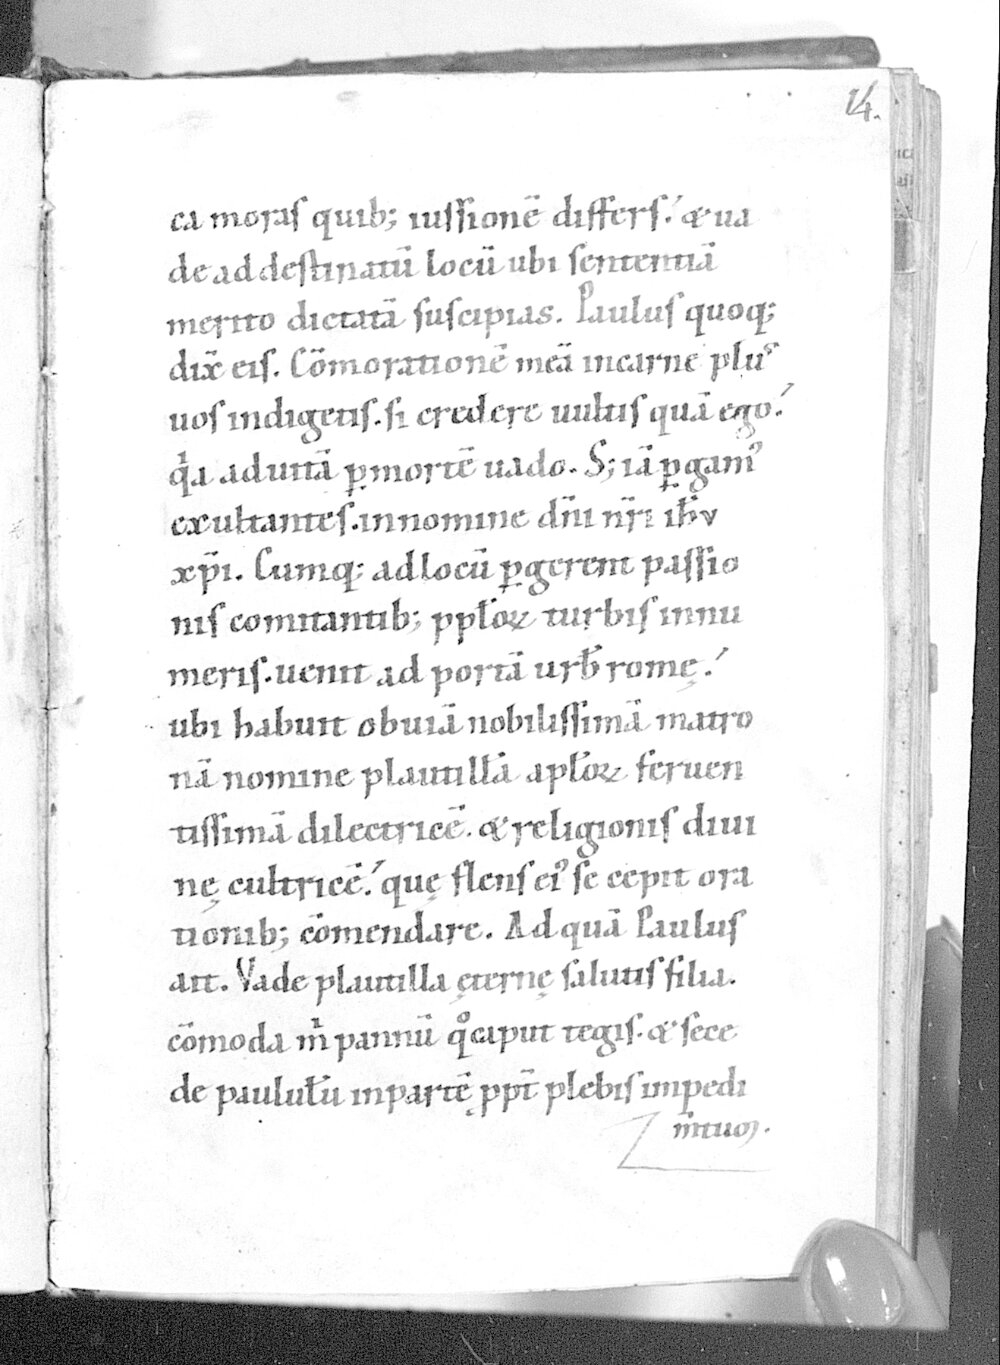 14.
ca moras quib; iussionē differs. & ua
de ad destinatū locū ubi sententiā
merito dictatā suscipias. Paulus quoq;
dix̄ eis. Cōmorationē meā in carne plus
uos indigetis. si credere uultis quā ego.
qͥa ad uitā ꝑ mortē uado. S; iā ꝑgamꝰ
exultantes. in nomine dn̄i nr̄i ih̄v
xp̄i. Cumq; ad locū ꝑgerent passio
nis comitantib; pplōꝝ turbis innu
meris. uenit ad portā urƀ romę.
ubi habuit obuiā nobilissimā matro
nā nomine plautillā aplōꝝ feruen
tissimā dilectricē. & religionis diui
nę cultricē. quę flens eiꝰ se cepit ora
tionib; cōmendare. Ad quā Paulus
ait. Vade plautilla ęternę salutis filia.
cōmoda mͥ pannū qͦ caput tegis. & sece
de paululū in partē ppt̄ plebis impedi
m̄tuꝫ.